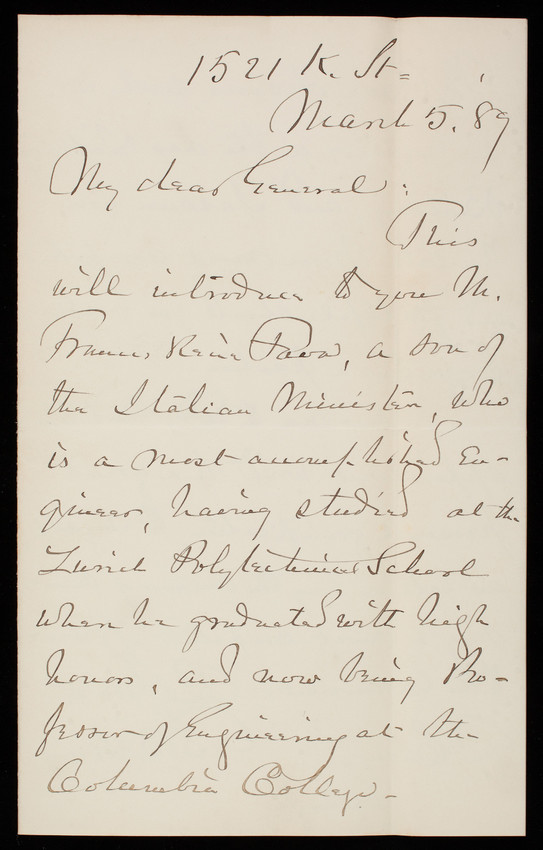 1521 K. St=
March 5. 89
My dear General:
This
will introduce to you M.
Francis René Fava, a son of
the Italian Minister, who
is a most accomplished En-
gineer, having studied at the
Zurich Polytechnical School
when he graduated with high
honors, and now being Pro-
fessor of Engineering at the
Columbia College.-